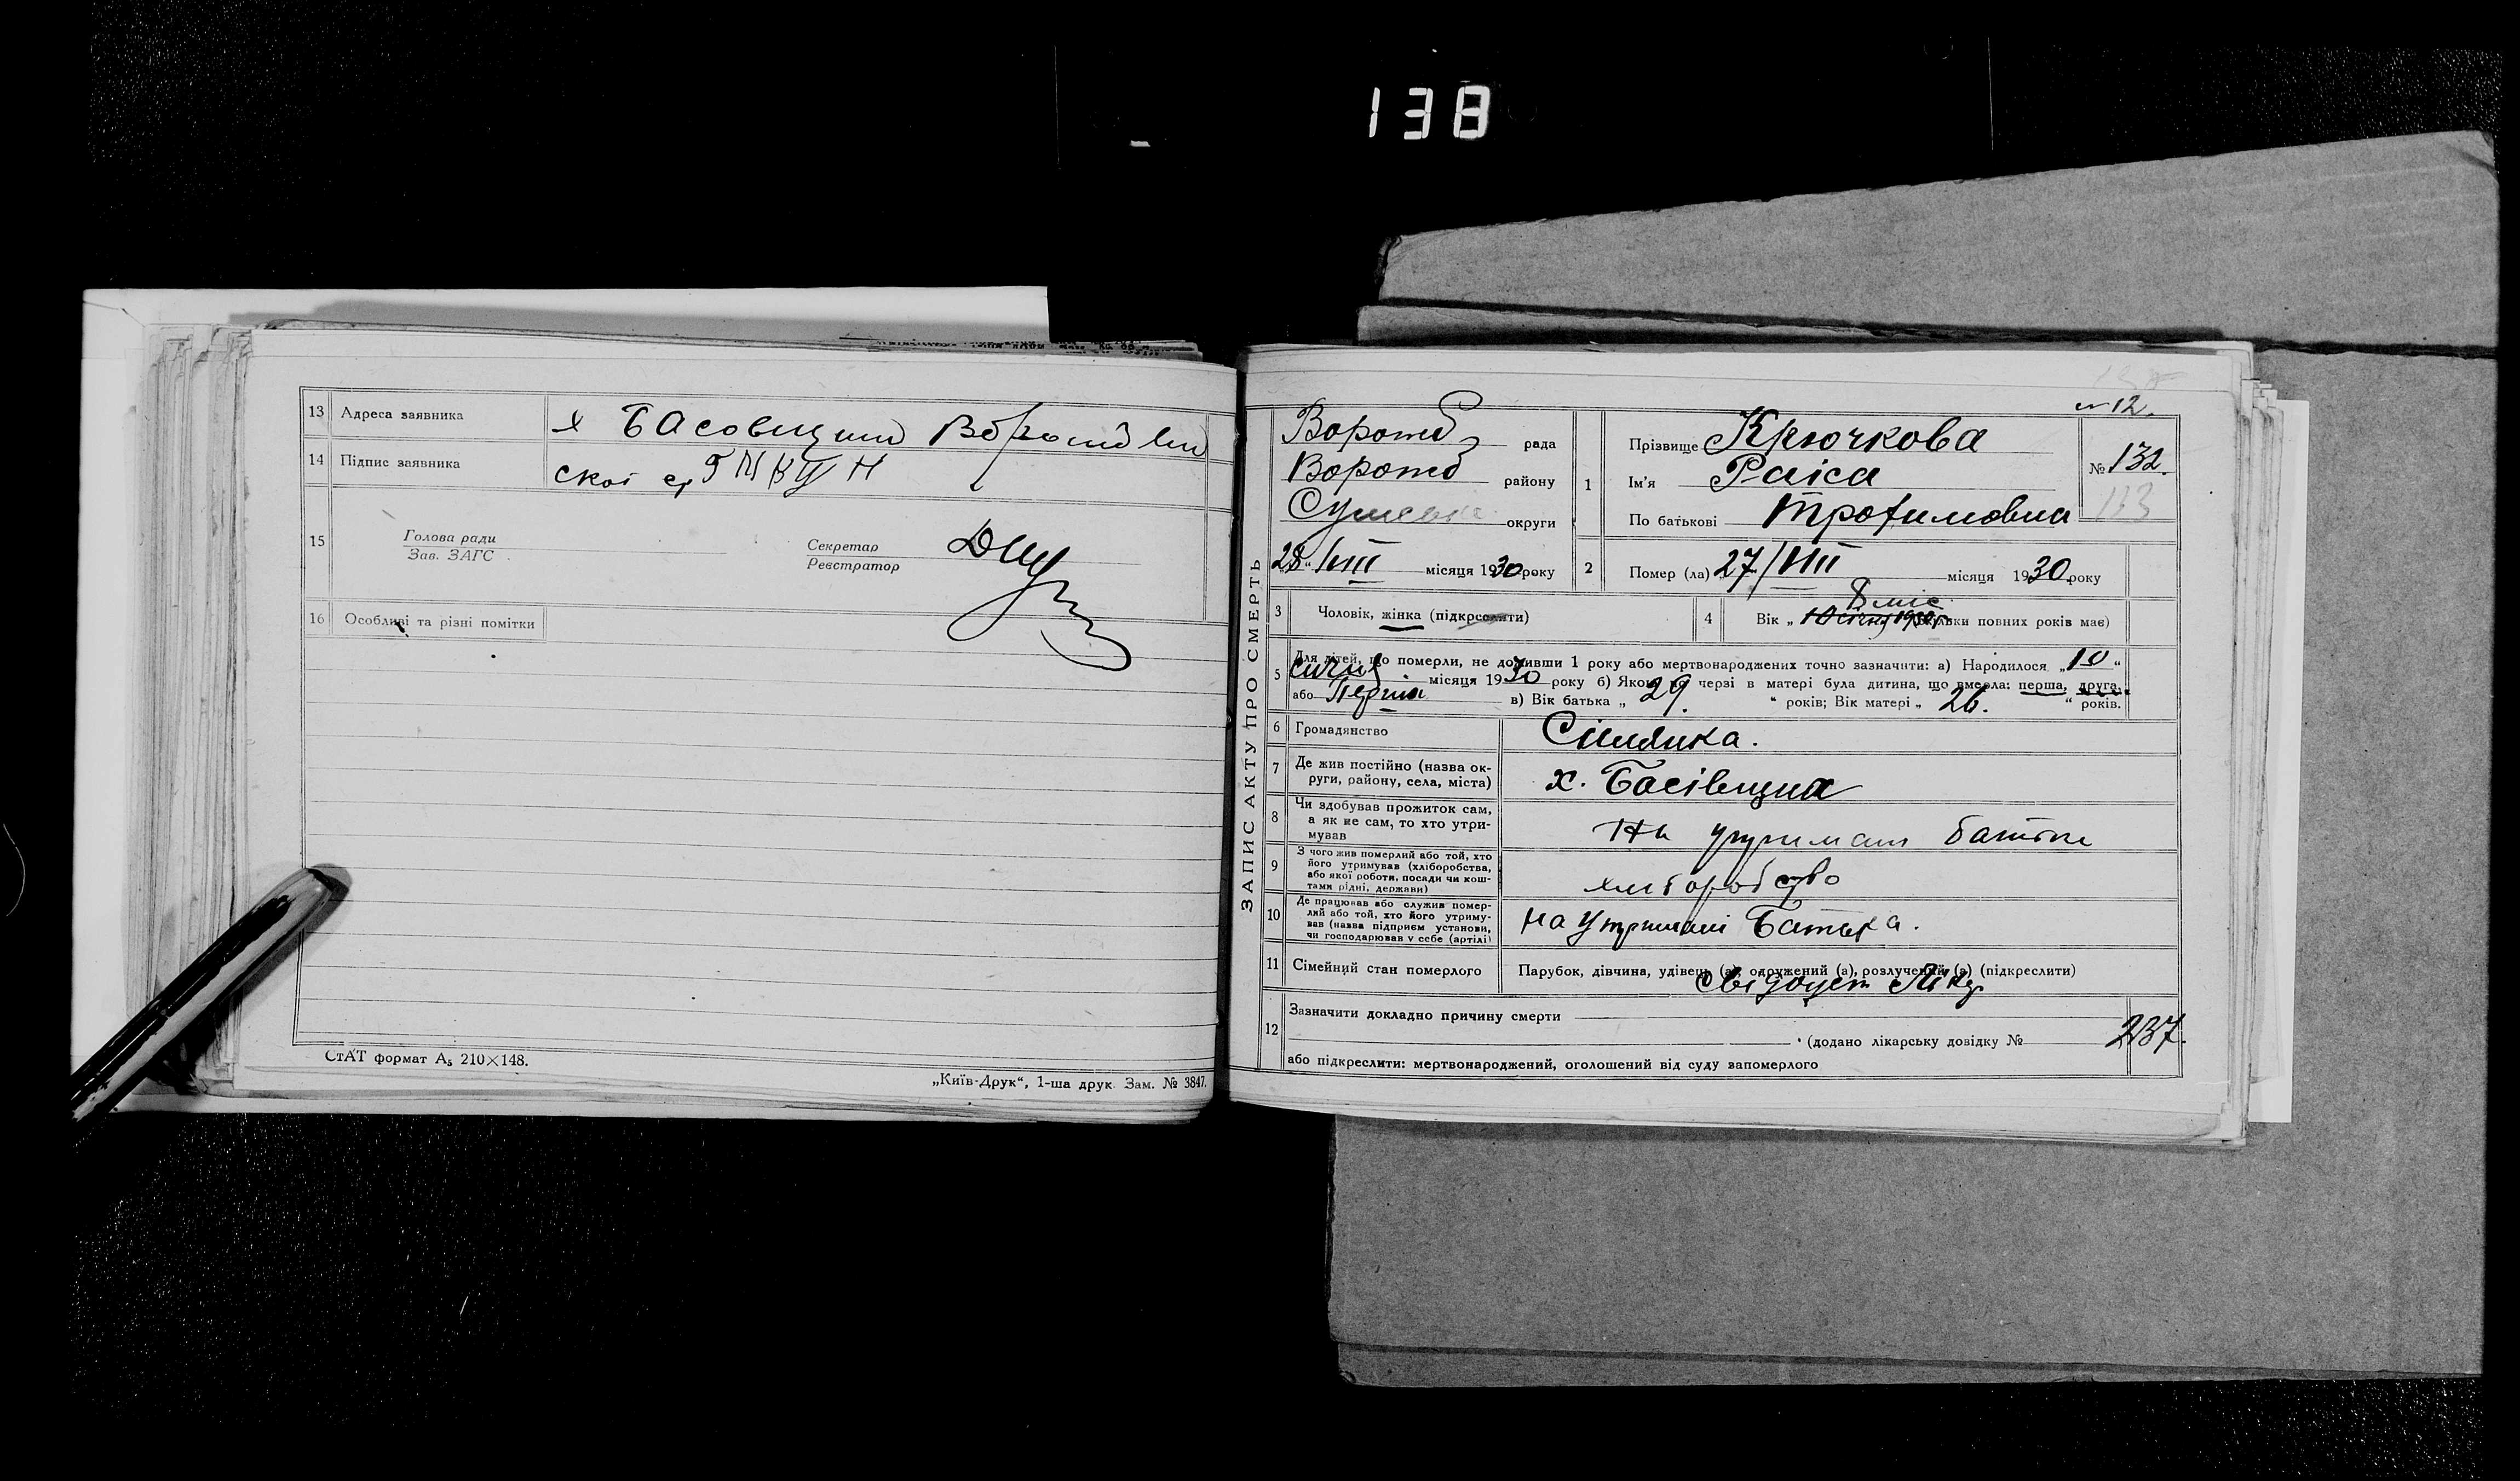 138
13 Адреса заявника х Басовщина
14 Підпис заявника
15 Голова ради
Зав. ЗАГС
Секретар
Реєстратор
16 Особливі та різні помітки
СтАТ формат А5 210×148.
„Київ-Друк“, 1-ша друк. Зам. № 3847.
ЗАПИС АКТУ ПРО СМЕРТЬ
12.
Ворожб рада
Ворожб району
Сумська округи
28 VIII місяця 1930 року
1 Прізвище Крючкова
Ім'я Раіса
По батькові Трофимовна
№ 132.
133
2 Помер (ла) 27/VIII місяця 1930 року
3 Чоловік, жінка (підкреслити)
8 міс
4 Вік „ 10 січня 1930 скільки повних років має)
5 Для дітей, що померли, не доживши 1 року або мертвонароджених точно зазначити: а) Народилося „10“
січня місяця 1930 року б) Якою по черзі в матері була дитина, що вмерла: перша, друга,
або Перша в) Вік батька „ 29. “ років; Вік матері „ 26. “ років.
6 Громадянство Силянка.
7 Де жив постійно (назва ок-
руги, району, села, міста) х. Басівщина
8 Чи здобував прожиток сам,
а як не сам, то хто утри-
мував На утримані батька
9 З чого жив померлий або той, хто
його утримував (хліборобства,
або якої роботи, посади чи кош-
тами рідні, держави) хліборобство
10 Де працював або служив помер-
лий або той, хто його утриму-
вав (назва підприєм установи,
чи господарював у себе (артілі) на утримані Батька.
11 Сімейний стан померлого Парубок, дівчина, удівець (а), одружений (а), розлучений (а) (підкреслити)
12 Зазначити докладно причину смерти
(додано лікарську довідку № 237.
або підкреслити: мертвонароджений, оголошений від суду запомерлого